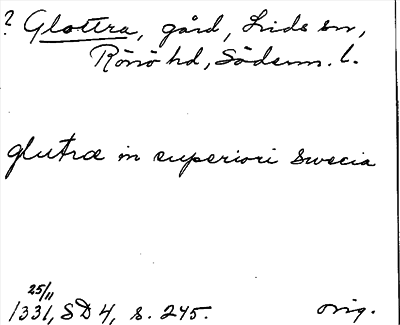 ? Glottra, gård, Lids sn,
Rönö hd, Söderm. l.
glutræ in superiori swecia
25/11
1331, SD 4, s. 245. orig.